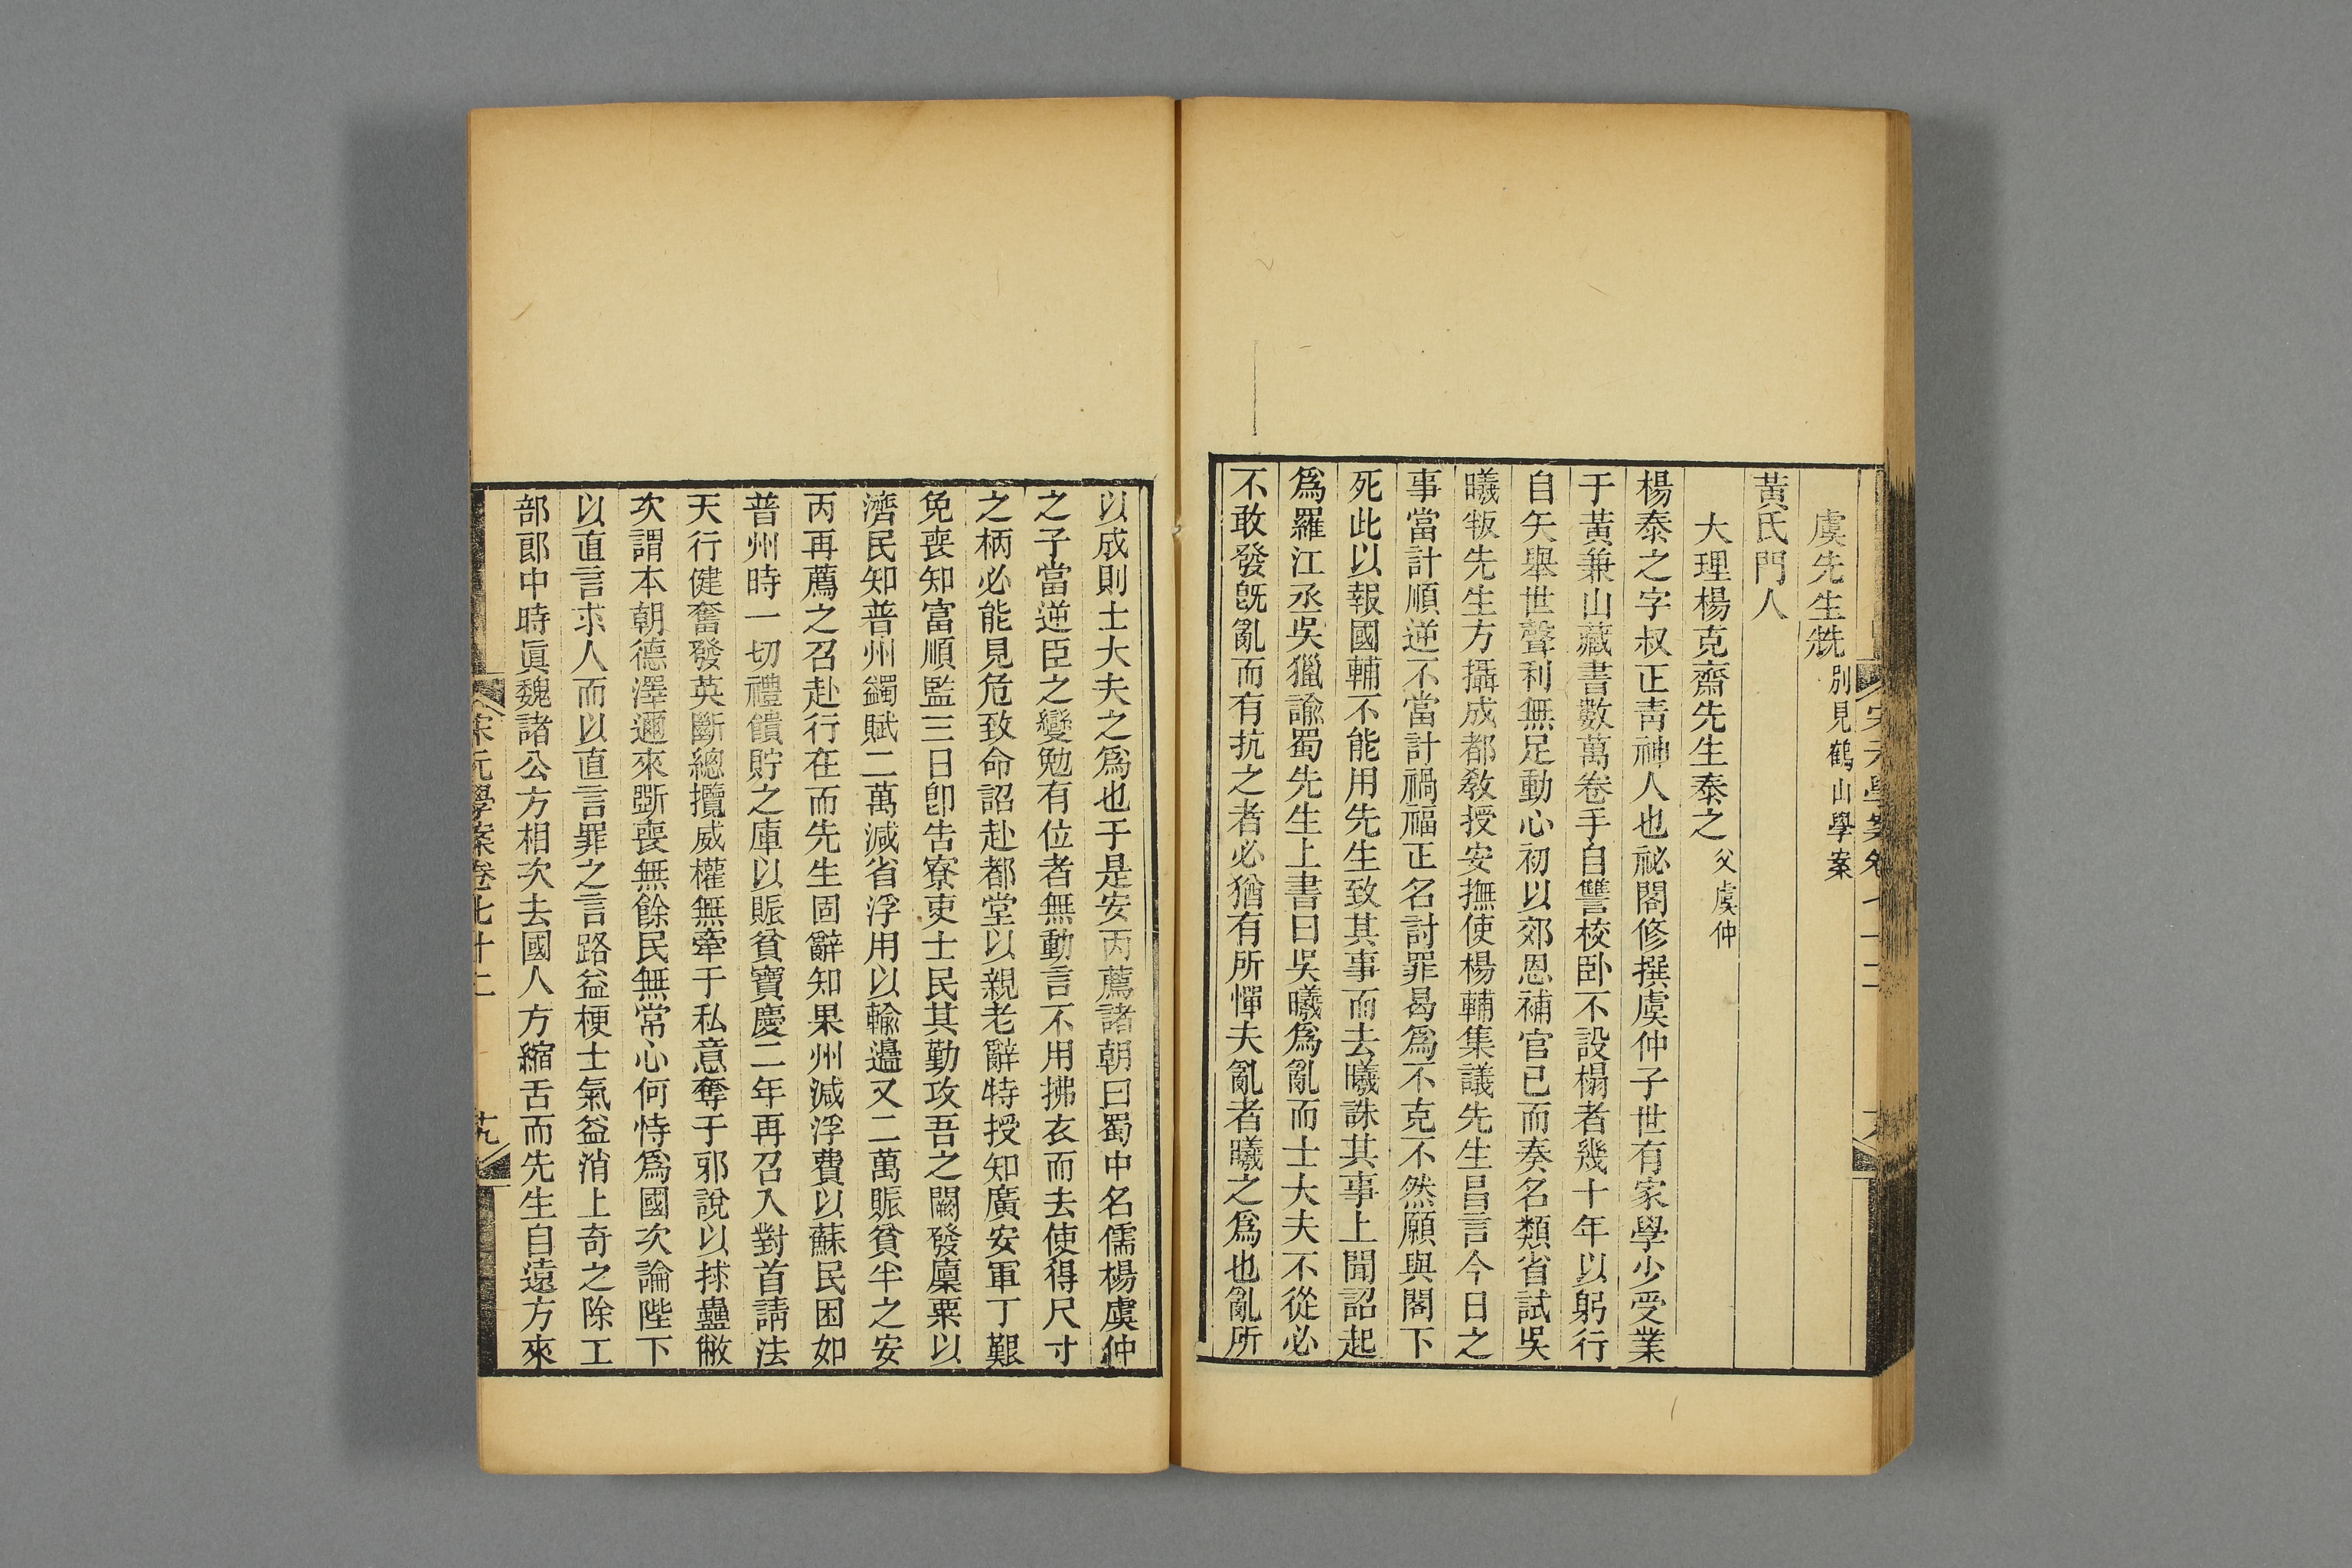 虞先生𣬠別見鶴山學案
黃氏門人
大理楊克齋先生泰之父虞仲
楊泰之字叔正靑神人也祕閣修撰虞仲子世有家學少受業
于黃兼山藏書數萬卷手自讐校卧不設榻者幾十年以躬行
自矢舉世聲利無足動心初以郊恩補官已而奏名類省試吳
曦叛先生方攝成都敎授安撫使楊輔集議先生昌言今日之
事當計順逆不當計禍福正名討罪曷爲不克不然願與閣下
死此以報國輔不能用先生致其事而去曦誅其事上聞詔起
爲羅江丞吳獵諭蜀先生上書曰吳曦爲亂而士大夫不從必
不敢發旣亂而有抗之者必猶有所憚夫亂者曦之爲也亂所
以成則士大夫之爲也于是安丙薦諸朝曰蜀中名儒楊虞仲
之子當逆臣之變勉有位者無動言不用拂衣而去使得尺寸
之柄必能見危致命詔赴都堂以親老辭特授知廣安軍丁艱
免喪知富順監三日卽吿寮吏士民其勤攻吾之闕發廩粟以
濟民知普州蠲賦二萬減省浮用以輸邊又二萬賑貧半之安
丙再薦之召赴行在而先生固辭知果州減浮費以蘇民困如
普州時一切禮饋貯之庫以賑貧寶慶二年再召入對首請法
天行健奮發英斷總攬威權無牽于私意奪于邪說以捄蠱敝
次謂本朝德澤邇來斲喪無餘民無常心何恃爲國次論陛下
以直言求人而以直言罪之言路益梗士氣益消上奇之除工
部郎中時眞魏諸公方相次去國人方縮舌而先生自遠方來
宋元學案卷七十二